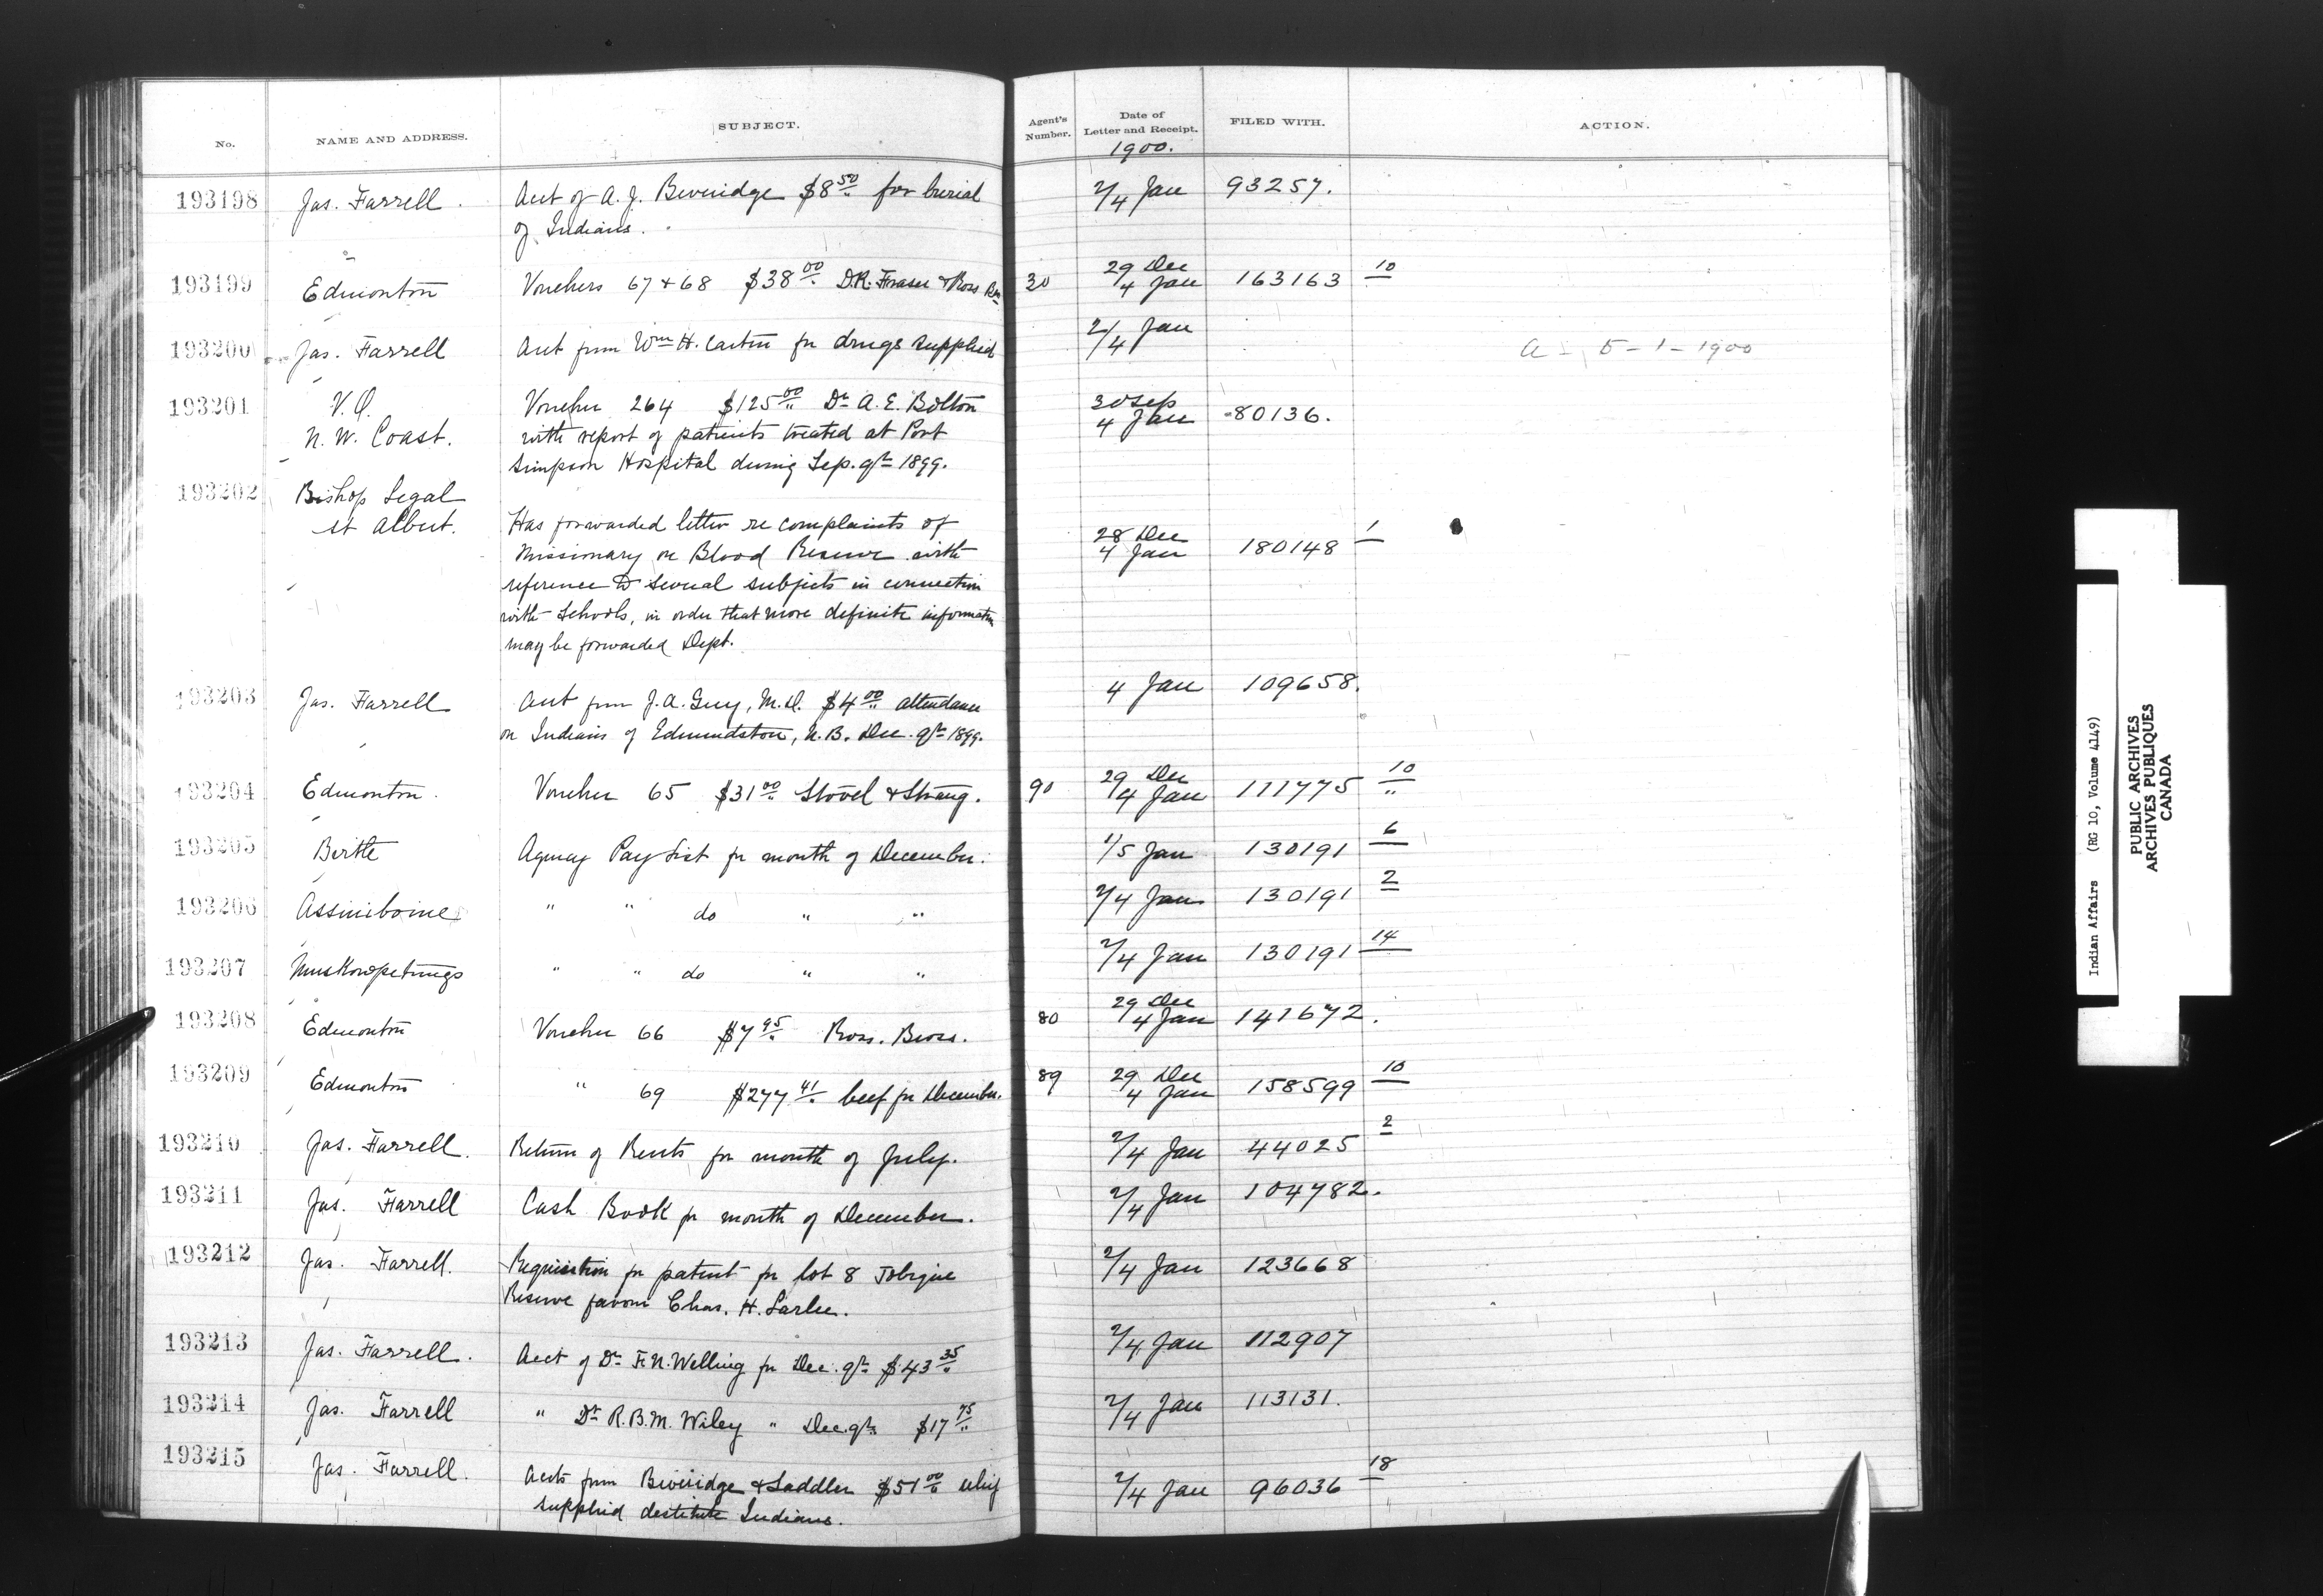 No. NAME AND ADDRESS. SUBJECT. Agent's Number. Date of Letter and Receipt. FILED WITH. ACTION.
1900.
193198 Jas. Farrell. Acct of A. J. Beveridge $8.50 for burial 2/4 Jan 93257.
of Indians.
193199 Edmonton Vouchers 67 + 68 $38.00 D.R. Fraser & Ross Bros 30 29 Dec 4 Jan 163163 10
193200 Jas. Farrell Acct from Wm H. Carten for drugs supplied 2/4 Jan a - 5-1-1900
193201 V.O. Voucher 264 $125.00 Dr A. E. Bolton 30 Sep 4 Jan 80136.
N. W. Coast. with report of patients treated at Port
Simpson Hospital during Sep. qr 1899.
193202 Bishop Legal
St Albert. Has forwarded letter re complaints of 28 Dec 4 Jan 180148 1
Missionary on Blood Reserve with
reference to several subjects in connection
with Schools, in order that more definite information
may be forwarded Dept.
193203 Jas. Farrell Acct from J. A. Guy, M.D. $4.00 attendance 4 Jan 109658.
on Indians of Edmundston, N.B. Dec. qr 1899.
193204 Edmonton. Voucher 65 $31.00 Stovel & Strang. 90 29 Dec 4 Jan 111775 10
193205 Birtle Agency Pay List for month of December. 1/5 Jan 130191 6
193206 Assiniboine " " do " " 2/4 Jan 130191 2
193207 Muskowpetungs " " do " " 2/4 Jan 130191 14
193208 Edmonton Voucher 66 $7.95 Ross. Bros. 80 29 Dec 4 Jan 141672.
193209 Edmonton " 69 $277.41 beef for December. 89 29 Dec 4 Jan 158599 10
193210 Jas. Farrell. Return of Rents for month of July. 2/4 Jan 44025 2
193211 Jas. Farrell Cash Book for month of December. 2/4 Jan 104782.
193212 Jas. Farrell. Requisition for patent for lot 8 Tobique 2/4 Jan 123668
Reserve favour Chas. H. Larlee.
193213 Jas. Farrell. Acct of Dr F. N. Welling for Dec. qr $43.35 2/4 Jan 112907
193214 Jas. Farrell " Dr R. B. M. Wiley " Dec. qr $17.75 2/4 Jan 113131.
193215 Jas. Farrell. Accts from Beveridge & Saddler $51.00 relief 2/4 Jan 96036 18
supplied destitute Indians.
Indian Affairs (RG 10, Volume 4149)
PUBLIC ARCHIVES
ARCHIVES PUBLIQUES
CANADA